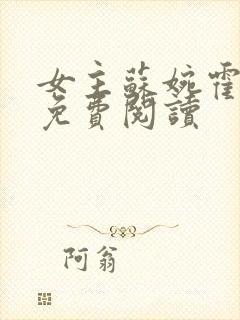 女主蘇婉霍
免費閱讀
阿翁